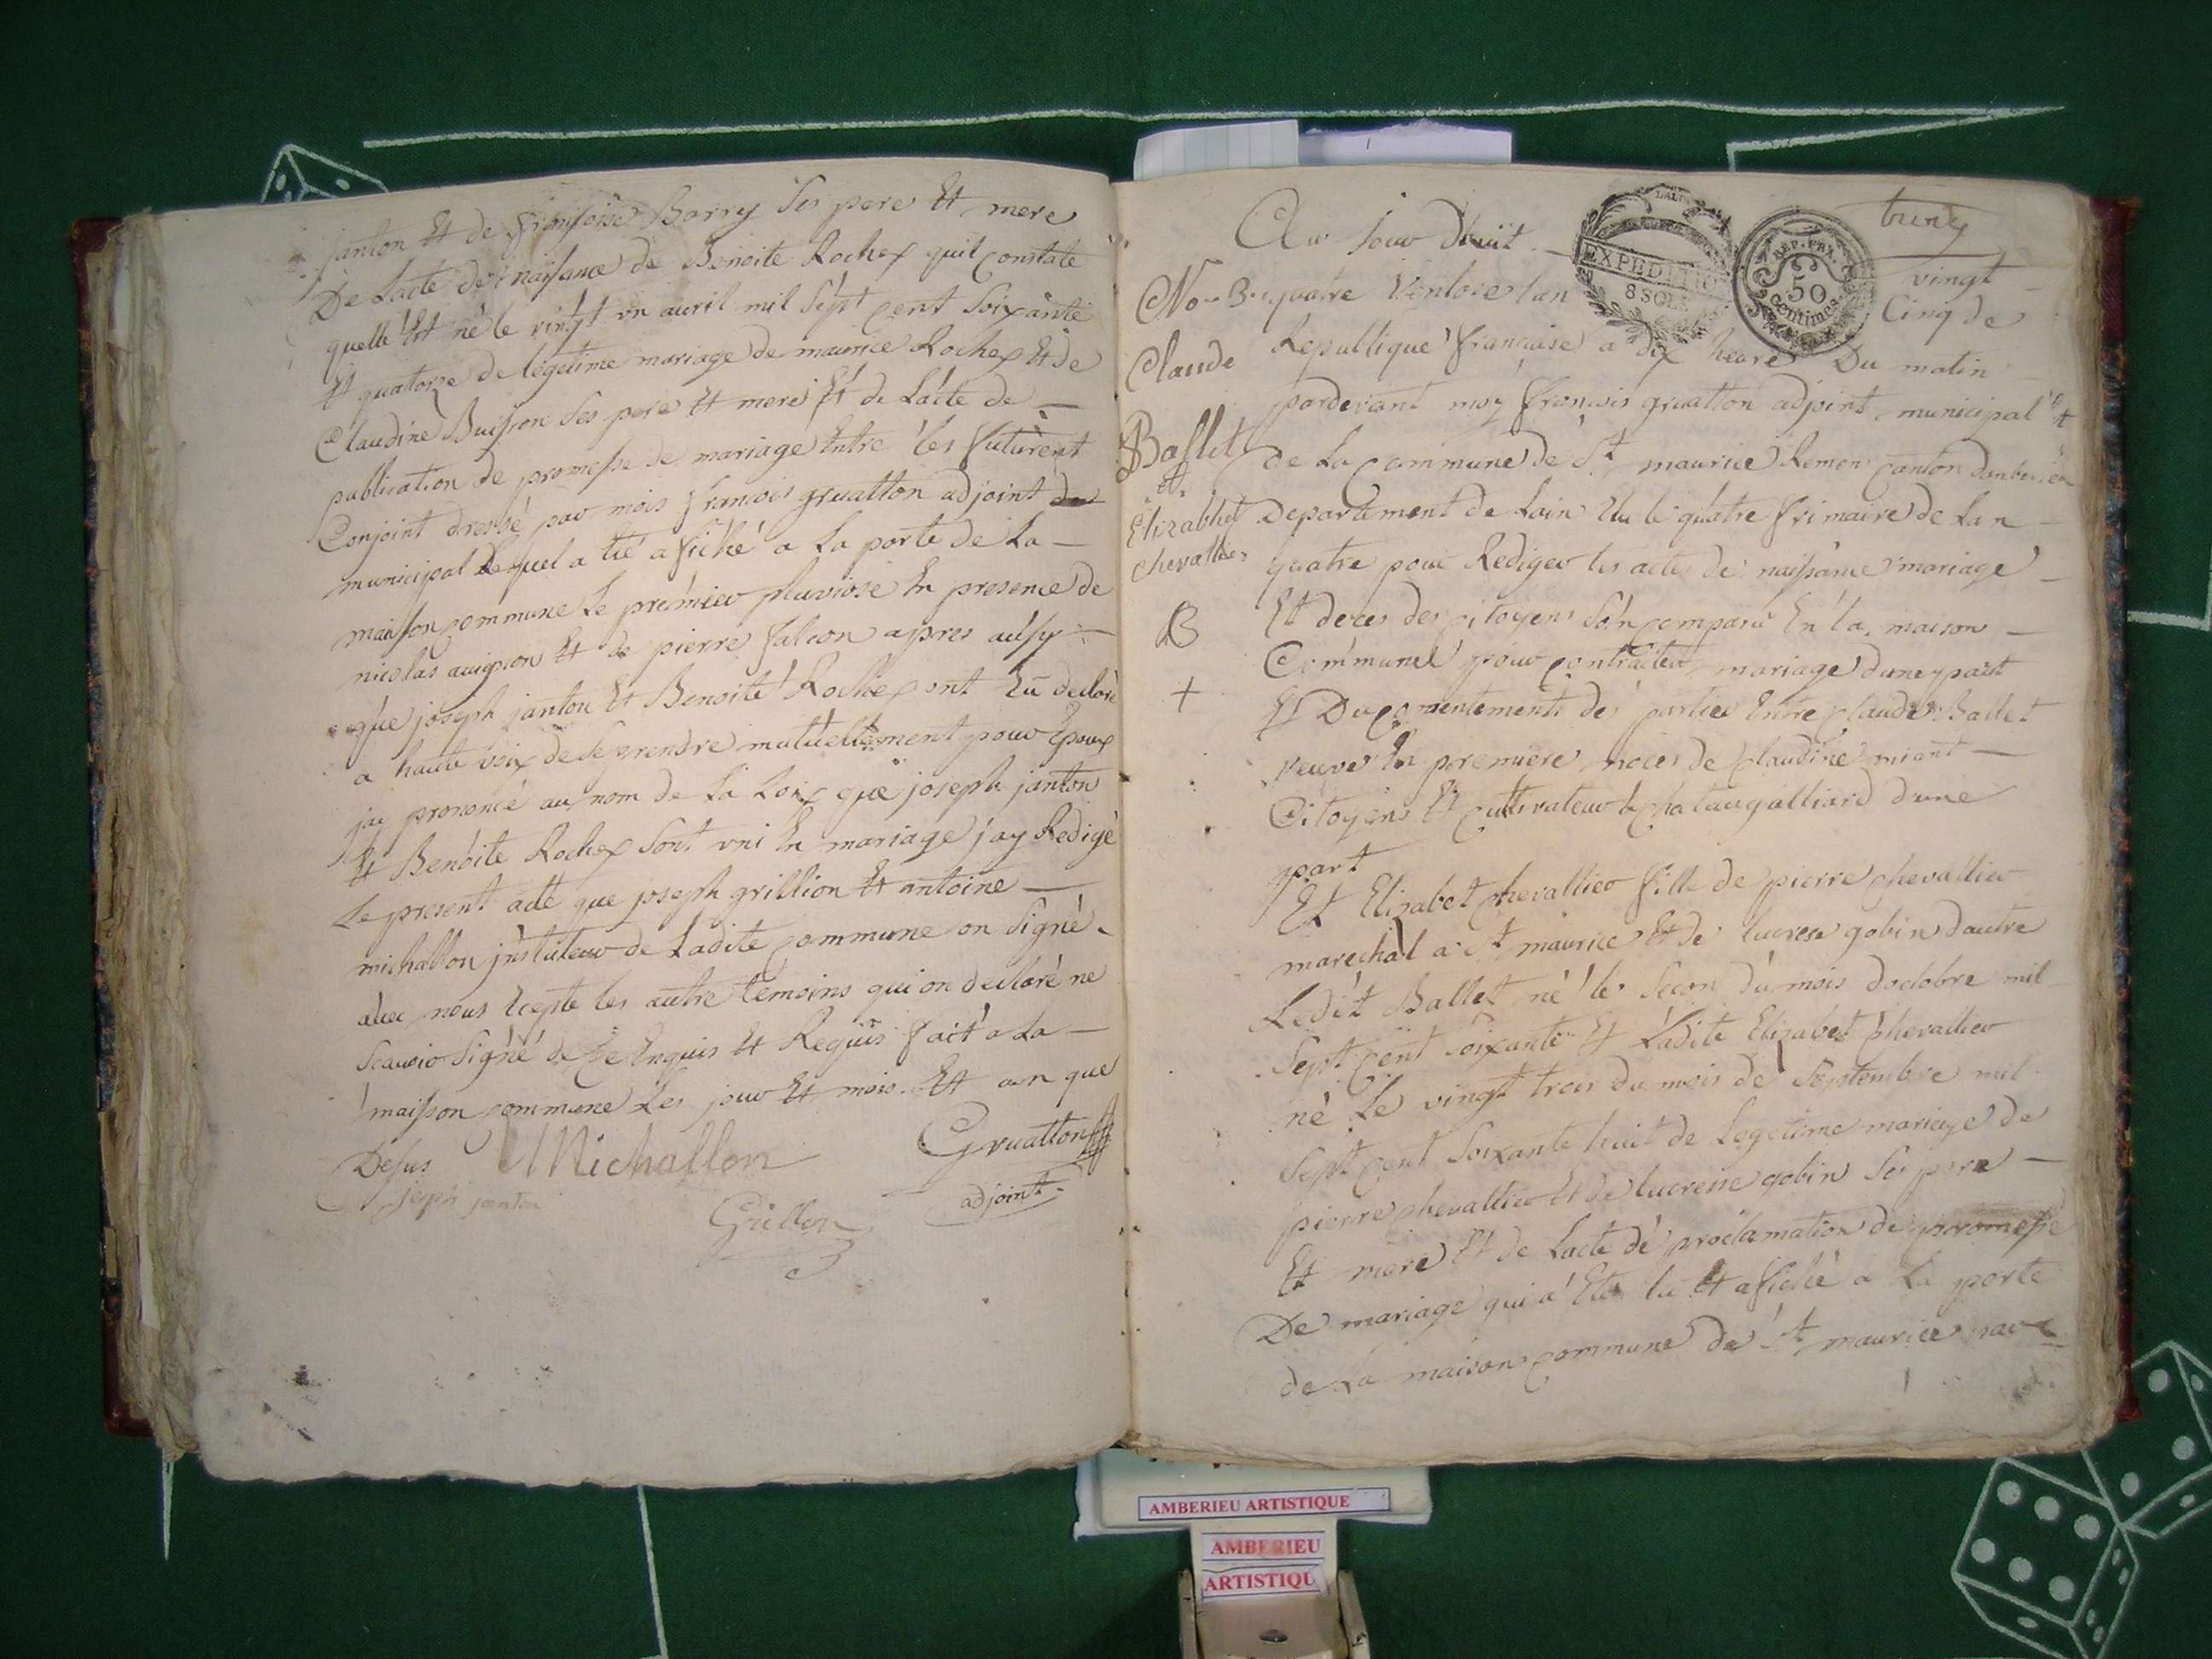 janton Et de franſoise Barry Ses pere Et mere
De Lacte de naiſance de Benoite Rochex quil constate
quelle Est né le vingt un auril mil Sept cent Soixante
Et quatorze de legetime mariage de maurice Rochex Et de
Claudine Buiſson Ses pere Et mere Et de Lacte de
publication de promeſse de mariage Entre les futurent
Conjoint dressé par mois francois gruatton adjoint
municipal Lequel a été afiché a La porte de La
maiſon commune Le premier pluviose En presence de
nicolas auignon Et de pierre falcon apres auſsy
que joseph janton Et Benoite Rochex ont Eu declaré
a haute voix de Se prendre mutuellement pour Epoux
jay prononcé au nom de La Loix que joseph janton
Et Benoite Rochex Sont uni En mariage jay Redigé
Le present acte que joseph grillion Et antoine
michallon jnstituteur de Ladite commune on Signé
avec nous Ecepte les autre temoins qui on declaré ne
Scavoir Signé de Ce Enquis Et Requis fait a La
maiſson commune Les jour Et mois Et an que
Deſus Michallon Gruatton
joseph janton Grillon adjoint
treny
Au Jour Dhuit vingt
EXPEDITION
8 SOLS
REP. FRA.
50
centimes
No 3 quatre Ventose lan Cinq de
Claude Republique francaise a dix heures Du matin
pardevant moy francois gruatton adjoint municipal
Ballet de La Commune de St maurice Remen Canton danberieu
et
Elizabhet Departement de Lain Elu le quatre frimaire de Lan
chevallier quatre pour Rediger les acte de naiſsance mariage
B Et deces des citoyens Son comparu En la maison
Commune pour contracter mariage dune part
+ Et Du consentement des parties Entre claude Ballet
veuve En premiere noces de claudine miant
Citoyens Et cultivateur a chataugalliard dune
part
Et Elizabet chevallier fille de pierre chevallier
marechal a St maurice Et de lucrese gobin dautre
Ledit Ballet né le Secon du mois doctobre mil
Sept cent soixante Et Ladite Elizabet chevallier
né Le vingt trois du mois de Septembre mil
Sept cent Soixante huit de Legetime mariage de
pierre chevallier Et de lucresse gobin Ses pere
Et mere Et de Lacte de proclamation de promeſse
De mariage qui a Eté lu Et afiché a La porte
de La maison commune de St maurice par
AMBERIEU ARTISTIQUE
AMBERIEU
ARTISTIQU